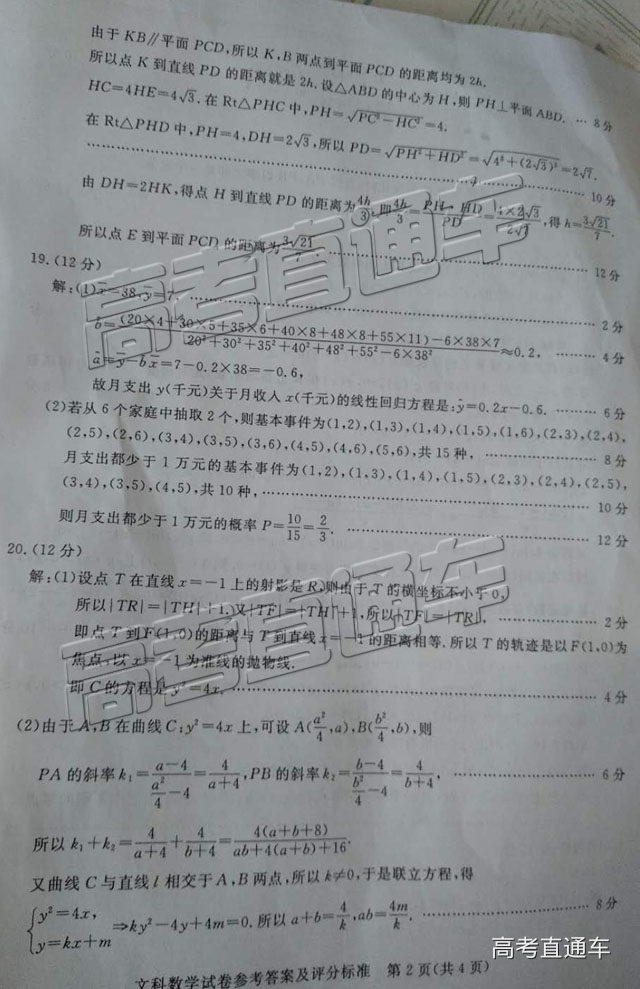 由于 KB∥平面 PCD,所以 K,B 两点到平面 PCD 的距离均为 2h.
所以点 K 到直线 PD 的距离就是 2h. 设△ABD 的中心为 H,则 PH⊥平面 ABD. … 8分
HC=4HE=4√3. 在 Rt△PHC 中,PH=√(PC²-HC²)=4.
在 Rt△PHD 中,PH=4,DH=2√3,所以 PD=√(PH²+HD²)=√(4²+(2√3)²)=2√7.
…… 10分
由 DH=2HK,得点 H 到直线 PD 的距离为 4h/3,即 4h/3=PH·HD/PD=4×2√3/2√7,得 h=3√21/7.
所以点 E 到平面 PCD 的距离为 3√21/7. …… 12分
19.(12分)
解:(1)x̄=38,ȳ=7. …… 2分
b̂=((20×4+30×5+35×6+40×8+48×8+55×11)-6×38×7)/(20²+30²+35²+40²+48²+55²-6×38²)≈0.2, …… 4分
â=ȳ-b̂x̄=7-0.2×38=-0.6,
故月支出 y(千元)关于月收入 x(千元)的线性回归方程是:ŷ=0.2x-0.6. …… 6分
(2)若从 6 个家庭中抽取 2 个,则基本事件为(1,2),(1,3),(1,4),(1,5),(1,6),(2,3),(2,4),
(2,5),(2,6),(3,4),(3,5),(3,6),(4,5),(4,6),(5,6),共 15 种, …… 8分
月支出都少于 1 万元的基本事件为(1,2),(1,3),(1,4),(1,5),(2,3),(2,4),(2,5),
(3,4),(3,5),(4,5),共 10 种, …… 10分
则月支出都少于 1 万元的概率 P=10/15=2/3. …… 12分
20.(12分)
解:(1)设点 T 在直线 x=-1 上的射影是 R,则由于 T 的横坐标不小于 0,
所以|TR|=|TH|+1.又|TF|=|TH|+1,所以|TF|=|TR|, …… 2分
即点 T 到 F(1,0)的距离与 T 到直线 x=-1 的距离相等. 所以 T 的轨迹是以 F(1,0)为
焦点,以 x=-1 为准线的抛物线.
即 C 的方程是 y²=4x. …… 4分
(2)由于 A,B 在曲线 C:y²=4x 上,可设 A(a²/4,a),B(b²/4,b),则
PA 的斜率 k₁=(a-4)/(a²/4-4)=4/(a+4),PB 的斜率 k₂=(b-4)/(b²/4-4)=4/(b+4), …… 6分
所以 k₁+k₂=4/(a+4)+4/(b+4)=4(a+b+8)/(ab+4(a+b)+16).
又曲线 C 与直线 l 相交于 A,B 两点,所以 k≠0,于是联立方程,得
{y²=4x,
y=kx+m ⇒ky²-4y+4m=0. 所以 a+b=4/k,ab=4m/k. …… 8分
文科数学试卷参考答案及评分标准 第2页(共4页)
高考直通车
高考直通车
高考直通车